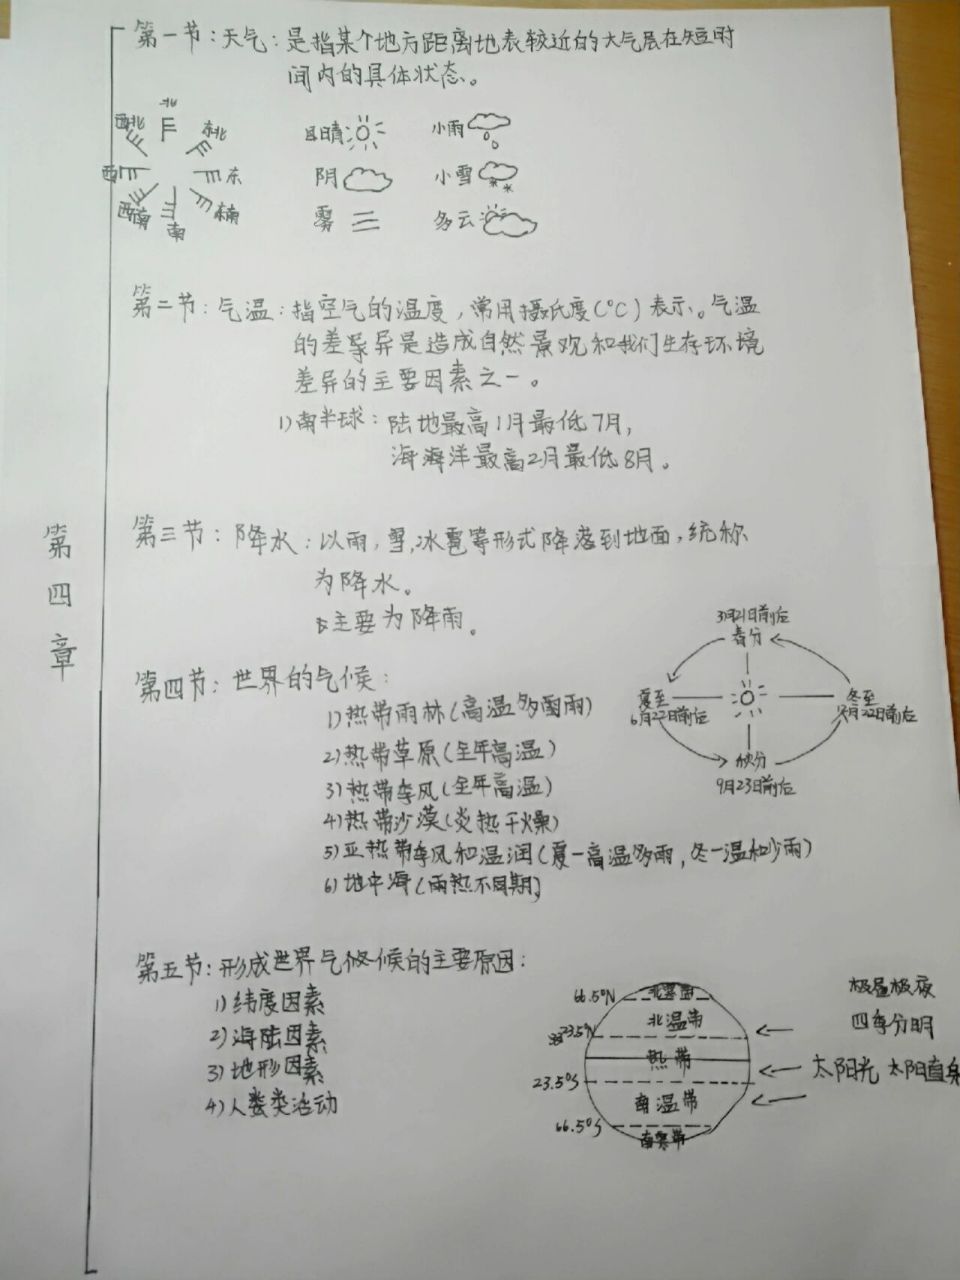 第四章
第一节：天气：是指某个地方距离地表较近的大气层在短时
间内的具体状态。
北
西北 东北
西 东
西南 东南
南
晴 小雨
阴 小雪
雾 多云
第二节：气温：指空气的温度，常用摄氏度(°C)表示。气温
的差异是造成自然景观和我们生存环境
差异的主要因素之一。
1)南半球：陆地最高1月最低7月，
海洋最高2月最低8月。
第三节：降水：以雨，雪，冰雹等形式降落到地面，统称
为降水。
主要为降雨。
3月21日前后
春分
夏至 冬至
6月22日前后 12月22日前后
秋分
9月23日前后
第四节：世界的气候：
1)热带雨林(高温多雨)
2)热带草原(全年高温)
3)热带季风(全年高温)
4)热带沙漠(炎热干燥)
5)亚热带季风和温润(夏一高温多雨，冬一温和少雨)
6)地中海(雨热不同期)
第五节：形成世界气候的主要原因：
1)纬度因素
2)海陆因素
3)地形因素
4)人类活动
66.5°N 北寒带 极昼极夜
北温带 四季分明
23.5°N
热带 太阳光 太阳直射
23.5°S
南温带
66.5°S
南寒带